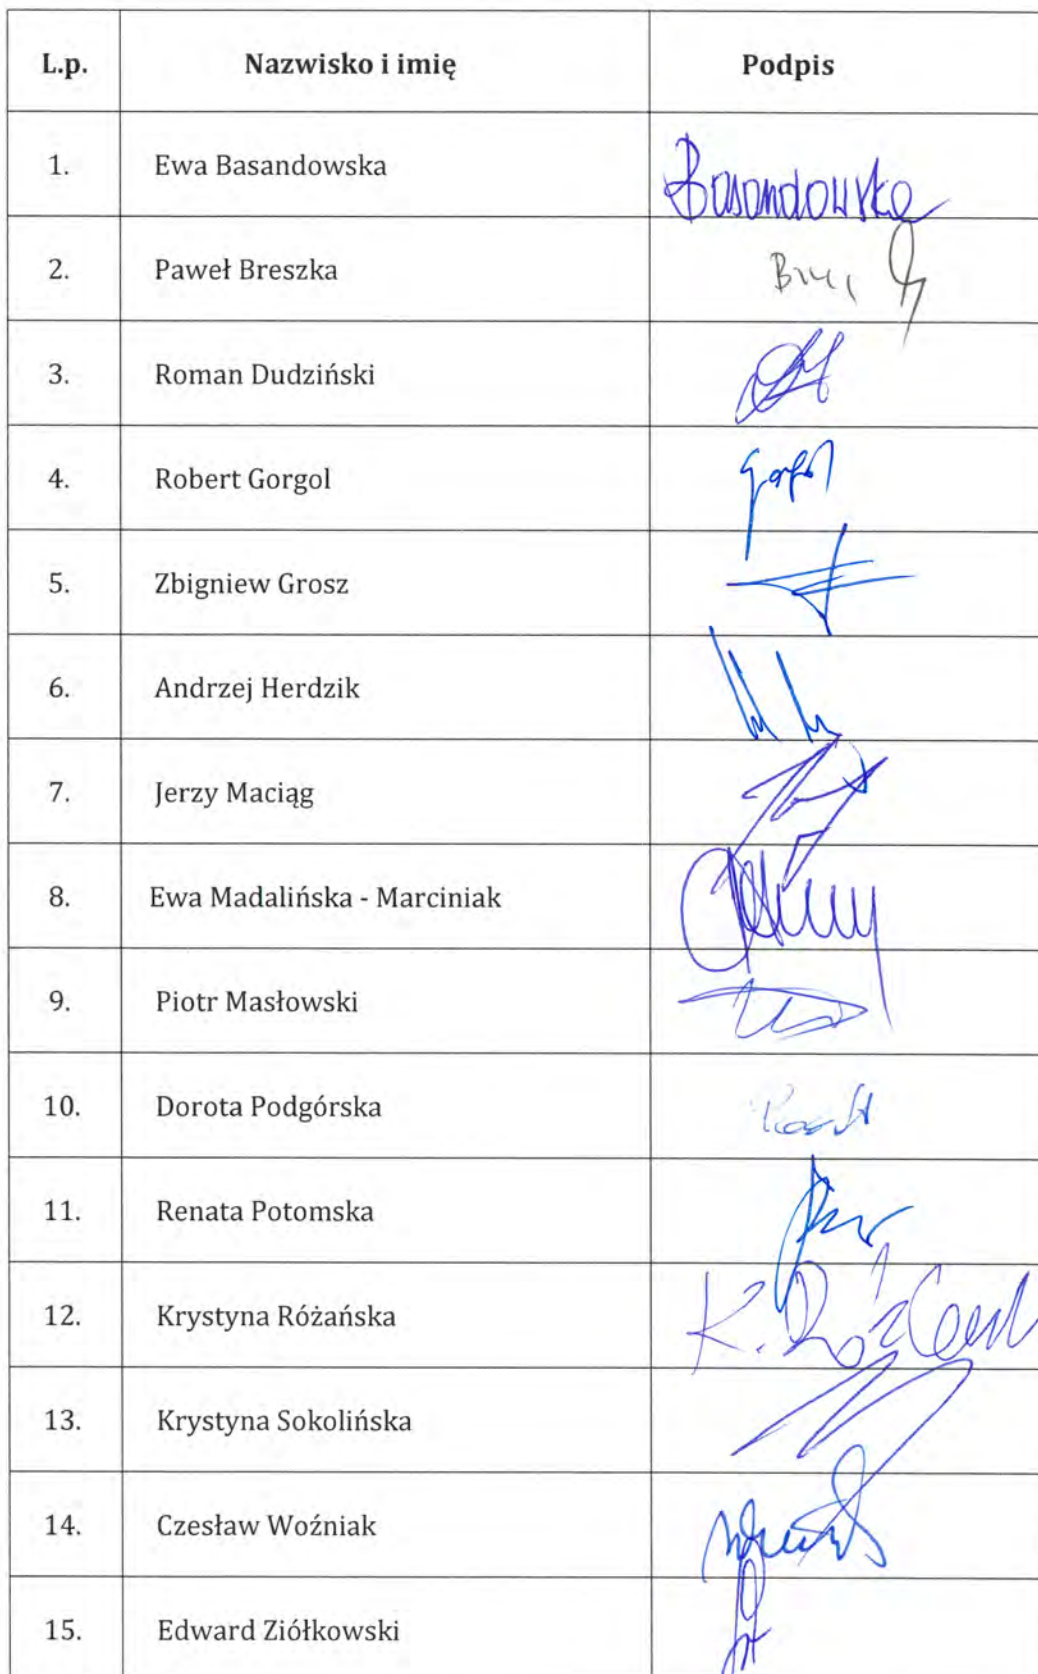 L.p. Nazwisko i imię Podpis
1. Ewa Basandowska Basandowska
2. Paweł Breszka
3. Roman Dudziński
4. Robert Gorgol Gorgol
5. Zbigniew Grosz
6. Andrzej Herdzik
7. Jerzy Maciąg
8. Ewa Madalińska - Marciniak
9. Piotr Masłowski
10. Dorota Podgórska
11. Renata Potomska
12. Krystyna Różańska K.
13. Krystyna Sokolińska
14. Czesław Woźniak
15. Edward Ziółkowski